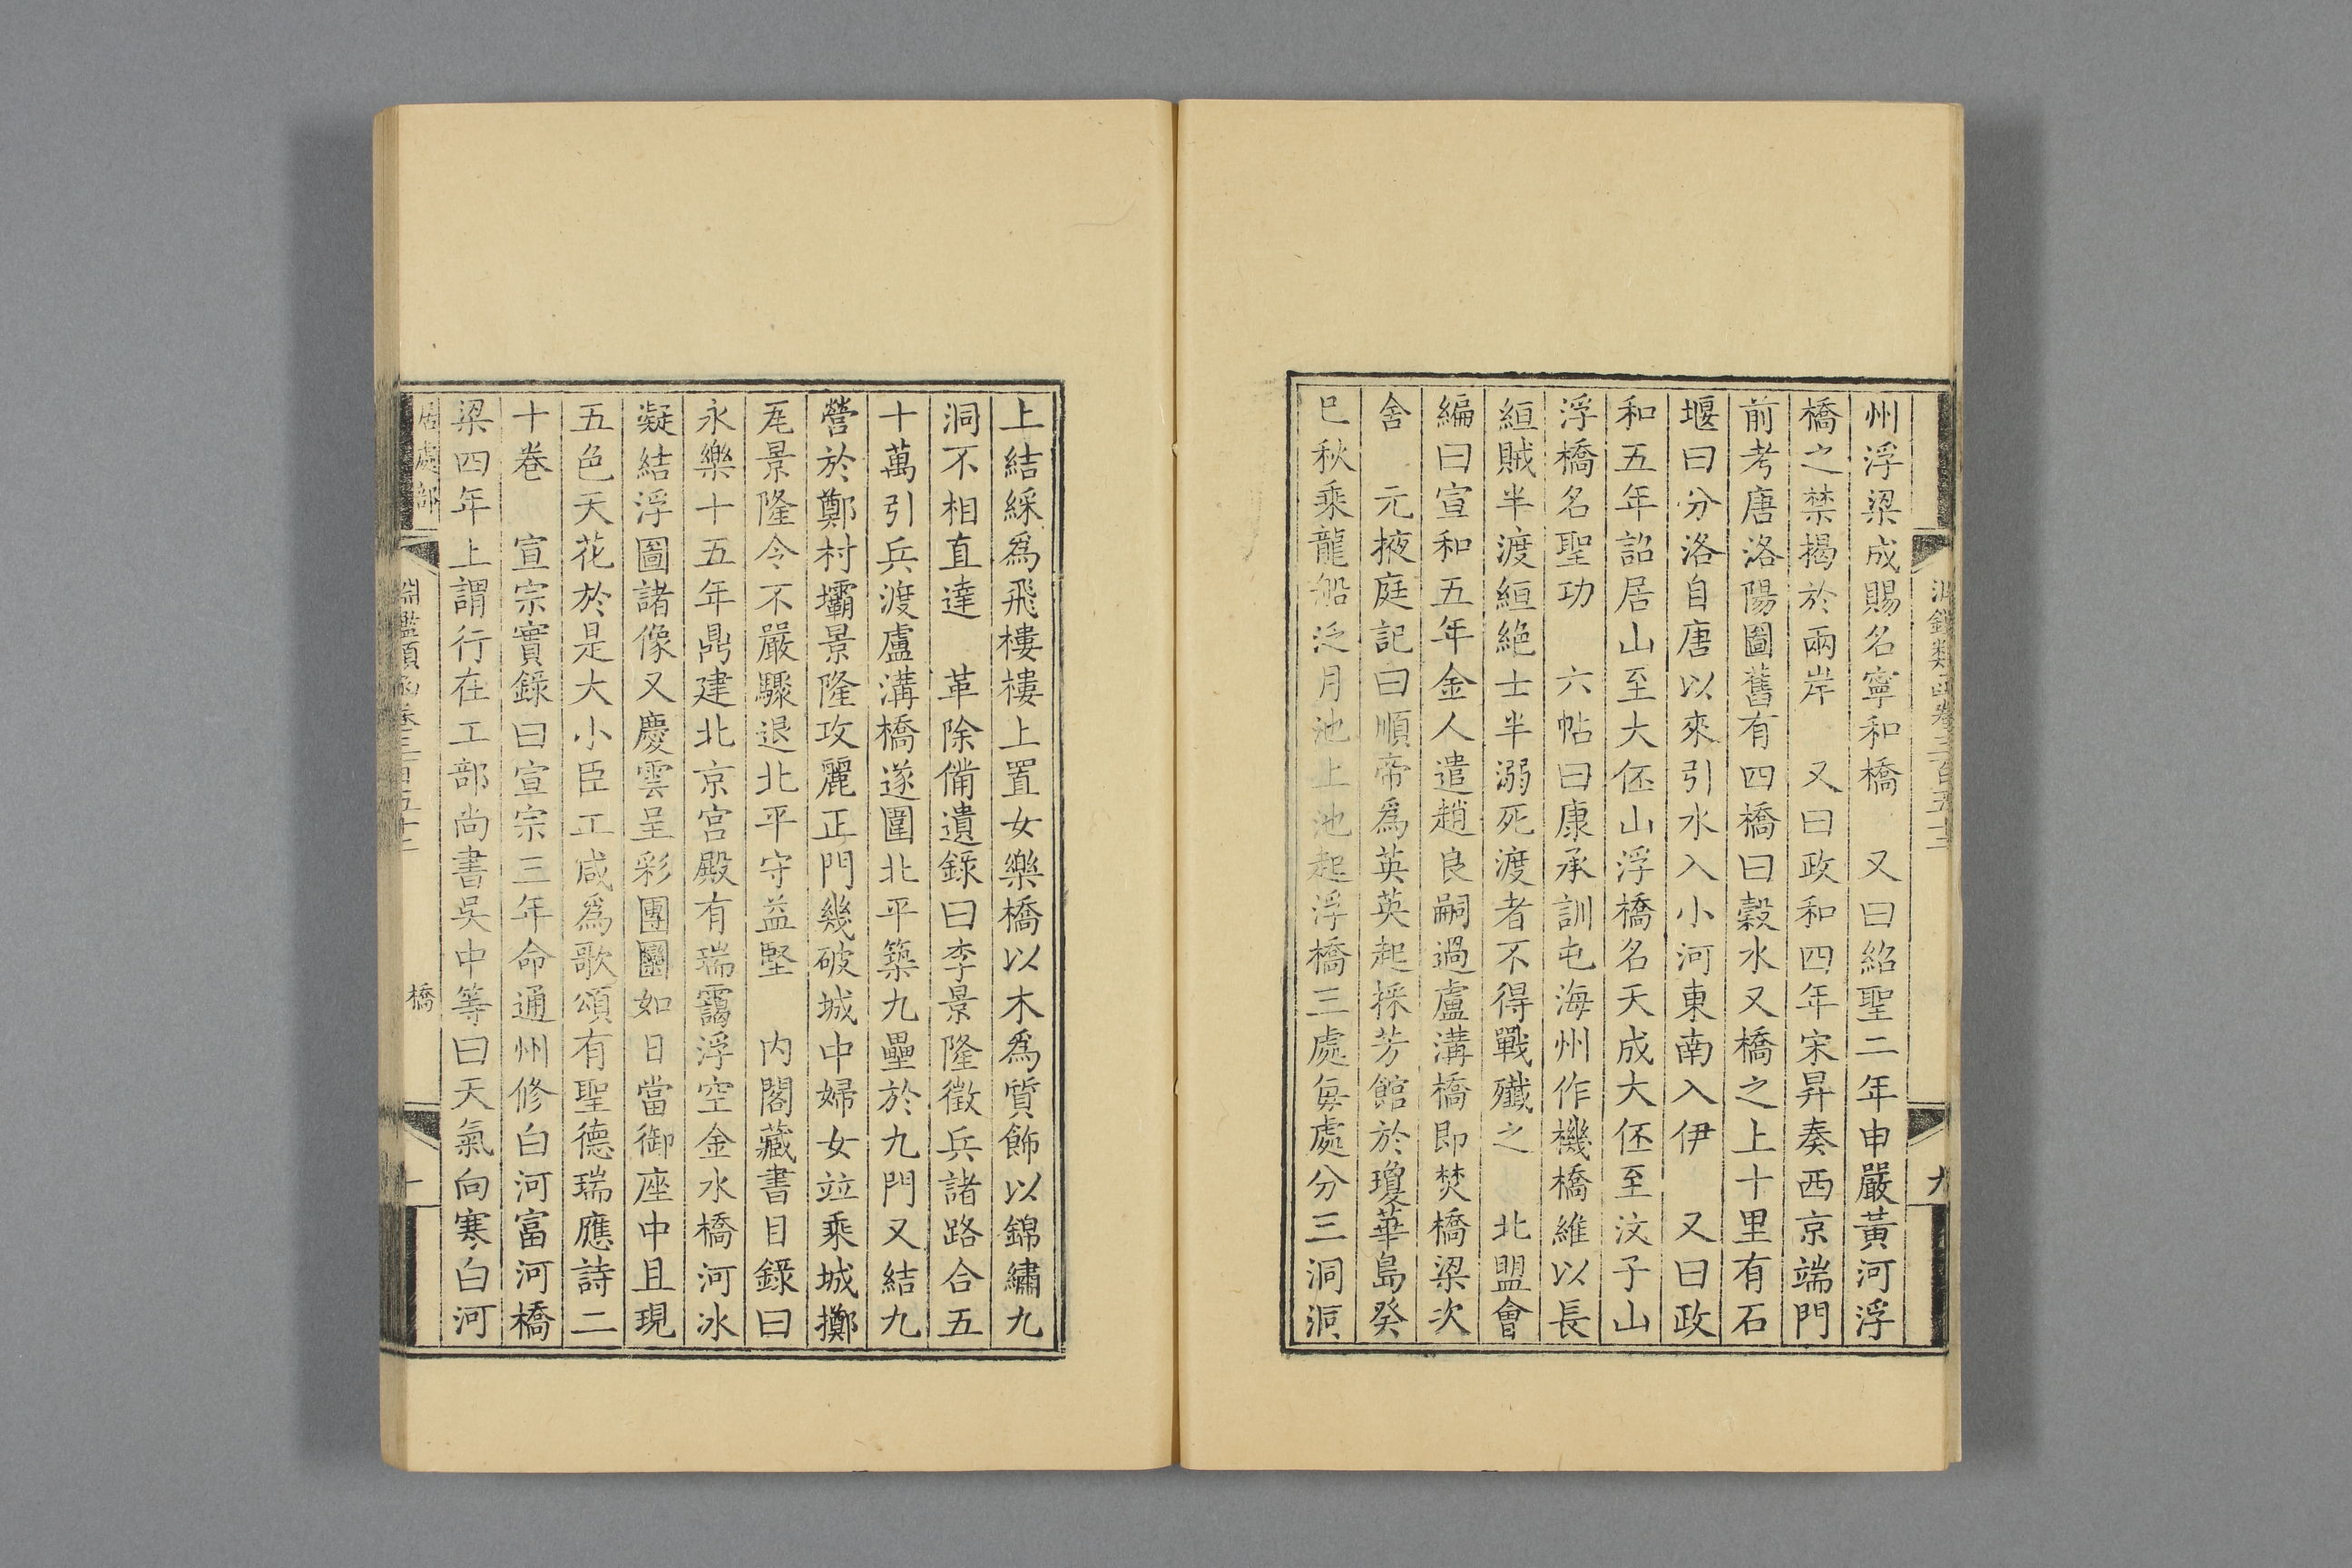 州浮梁成賜名寧和橋　又曰紹聖二年申嚴黃河浮
橋之禁揭於兩岸　又曰政和四年宋昇奏西京端門
前考唐洛陽圖舊有四橋曰穀水又橋之上十里有石
堰曰分洛自唐以來引水入小河東南入伊　又曰政
和五年詔居山至大伾山浮橋名天成大伾至汶子山
浮橋名聖功　六帖曰康承訓屯海州作機橋維以長
絙賊半渡絙絶士半溺死渡者不得戰殲之　北盟會
編曰宣和五年金人遣趙良嗣過盧溝橋即焚橋梁次
舍　元掖庭記曰順帝爲英英起採芳館於瓊華島癸
巳秋乘龍船泛月池上池起浮橋三處每處分三洞洞
上結綵爲飛樓樓上置女樂橋以木爲質飾以錦繡九
洞不相直達　革除備遺錄曰李景隆徵兵諸路合五
十萬引兵渡盧溝橋遂圍北平築九壘於九門又結九
營於鄭村壩景隆攻麗正門幾破城中婦女竝乘城擲
瓦景隆令不嚴驟退北平守益堅　内閣藏書目錄曰
永樂十五年鼎建北京宫殿有瑞靄浮空金水橋河冰
凝結浮圖諸像又慶雲呈彩團圞如日當御座中且現
五色天花於是大小臣工咸爲歌頌有聖德瑞應詩二
十卷　宣宗實錄曰宣宗三年命通州修白河富河橋
梁四年上謂行在工部尚書吳中等曰天氣向寒白河
居處部　淵鑑類函卷三百五十二　橋